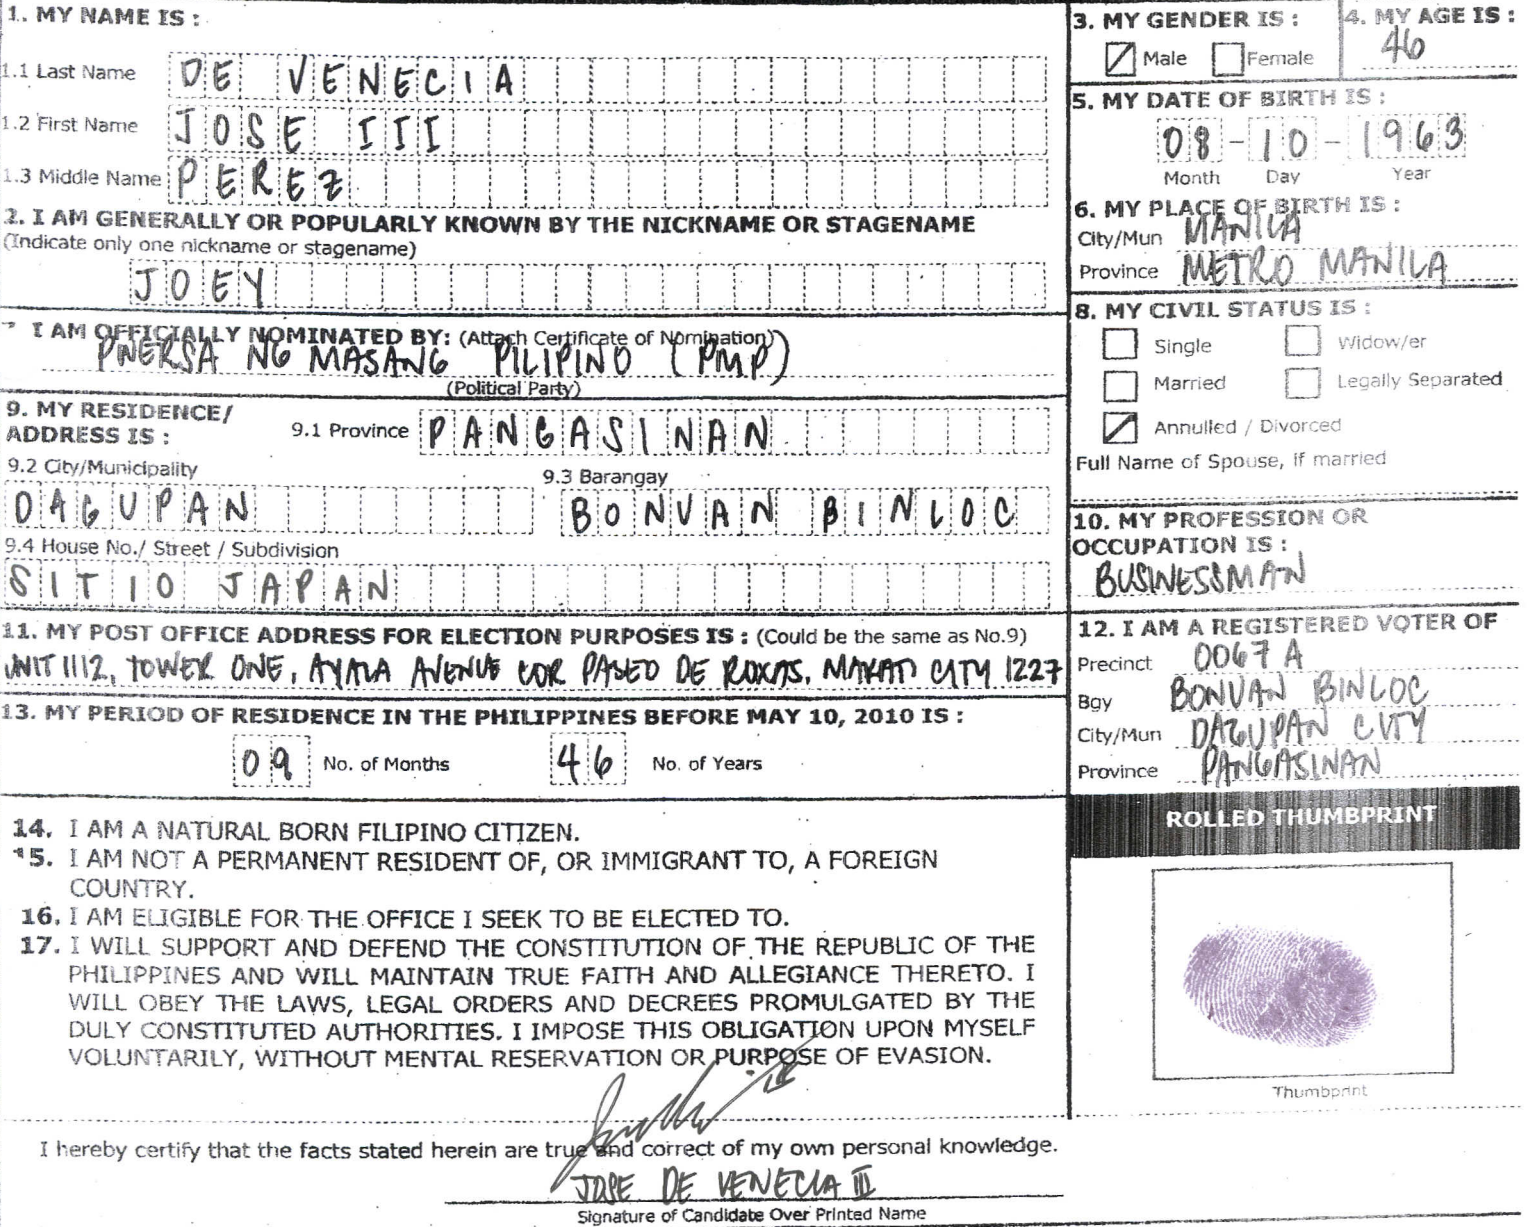 1. MY NAME IS :
1.1 Last Name DE VENECIA
1.2 First Name JOSE III
1.3 Middle Name PEREZ
2. I AM GENERALLY OR POPULARLY KNOWN BY THE NICKNAME OR STAGENAME
(Indicate only one nickname or stagename)
JOEY
I AM OFFICIALLY NOMINATED BY: (Attach Certificate of Nomination)
PWERSA NG MASANG PILIPINO (PMP)
(Political Party)
9. MY RESIDENCE/
ADDRESS IS :
9.1 Province PANGASINAN
9.2 City/Municipality
DAGUPAN
9.3 Barangay
BONUAN BINLOC
9.4 House No./ Street / Subdivision
SITIO JAPAN
11. MY POST OFFICE ADDRESS FOR ELECTION PURPOSES IS : (Could be the same as No.9)
UNIT 1112, TOWER ONE, AYALA AVENUE COR PASEO DE ROXAS, MAKATI CITY 1227
13. MY PERIOD OF RESIDENCE IN THE PHILIPPINES BEFORE MAY 10, 2010 IS :
09 No. of Months 46 No. of Years
14. I AM A NATURAL BORN FILIPINO CITIZEN.
15. I AM NOT A PERMANENT RESIDENT OF, OR IMMIGRANT TO, A FOREIGN
COUNTRY.
16. I AM ELIGIBLE FOR THE OFFICE I SEEK TO BE ELECTED TO.
17. I WILL SUPPORT AND DEFEND THE CONSTITUTION OF THE REPUBLIC OF THE
PHILIPPINES AND WILL MAINTAIN TRUE FAITH AND ALLEGIANCE THERETO. I
WILL OBEY THE LAWS, LEGAL ORDERS AND DECREES PROMULGATED BY THE
DULY CONSTITUTED AUTHORITIES. I IMPOSE THIS OBLIGATION UPON MYSELF
VOLUNTARILY, WITHOUT MENTAL RESERVATION OR PURPOSE OF EVASION.
3. MY GENDER IS :
Male Female
4. MY AGE IS :
46
5. MY DATE OF BIRTH IS :
08-10-1963
Month Day Year
6. MY PLACE OF BIRTH IS :
City/Mun MANILA
Province METRO MANILA
8. MY CIVIL STATUS IS :
Single Widow/er
Married Legally Separated
Annulled / Divorced
Full Name of Spouse, if married
10. MY PROFESSION OR
OCCUPATION IS :
BUSINESSMAN
12. I AM A REGISTERED VOTER OF
Precinct 0067 A
Bgy BONUAN BINLOC
City/Mun DAGUPAN CITY
Province PANGASINAN
ROLLED THUMBPRINT
Thumbprint
I hereby certify that the facts stated herein are true and correct of my own personal knowledge.
JOSE DE VENECIA III
Signature of Candidate Over Printed Name